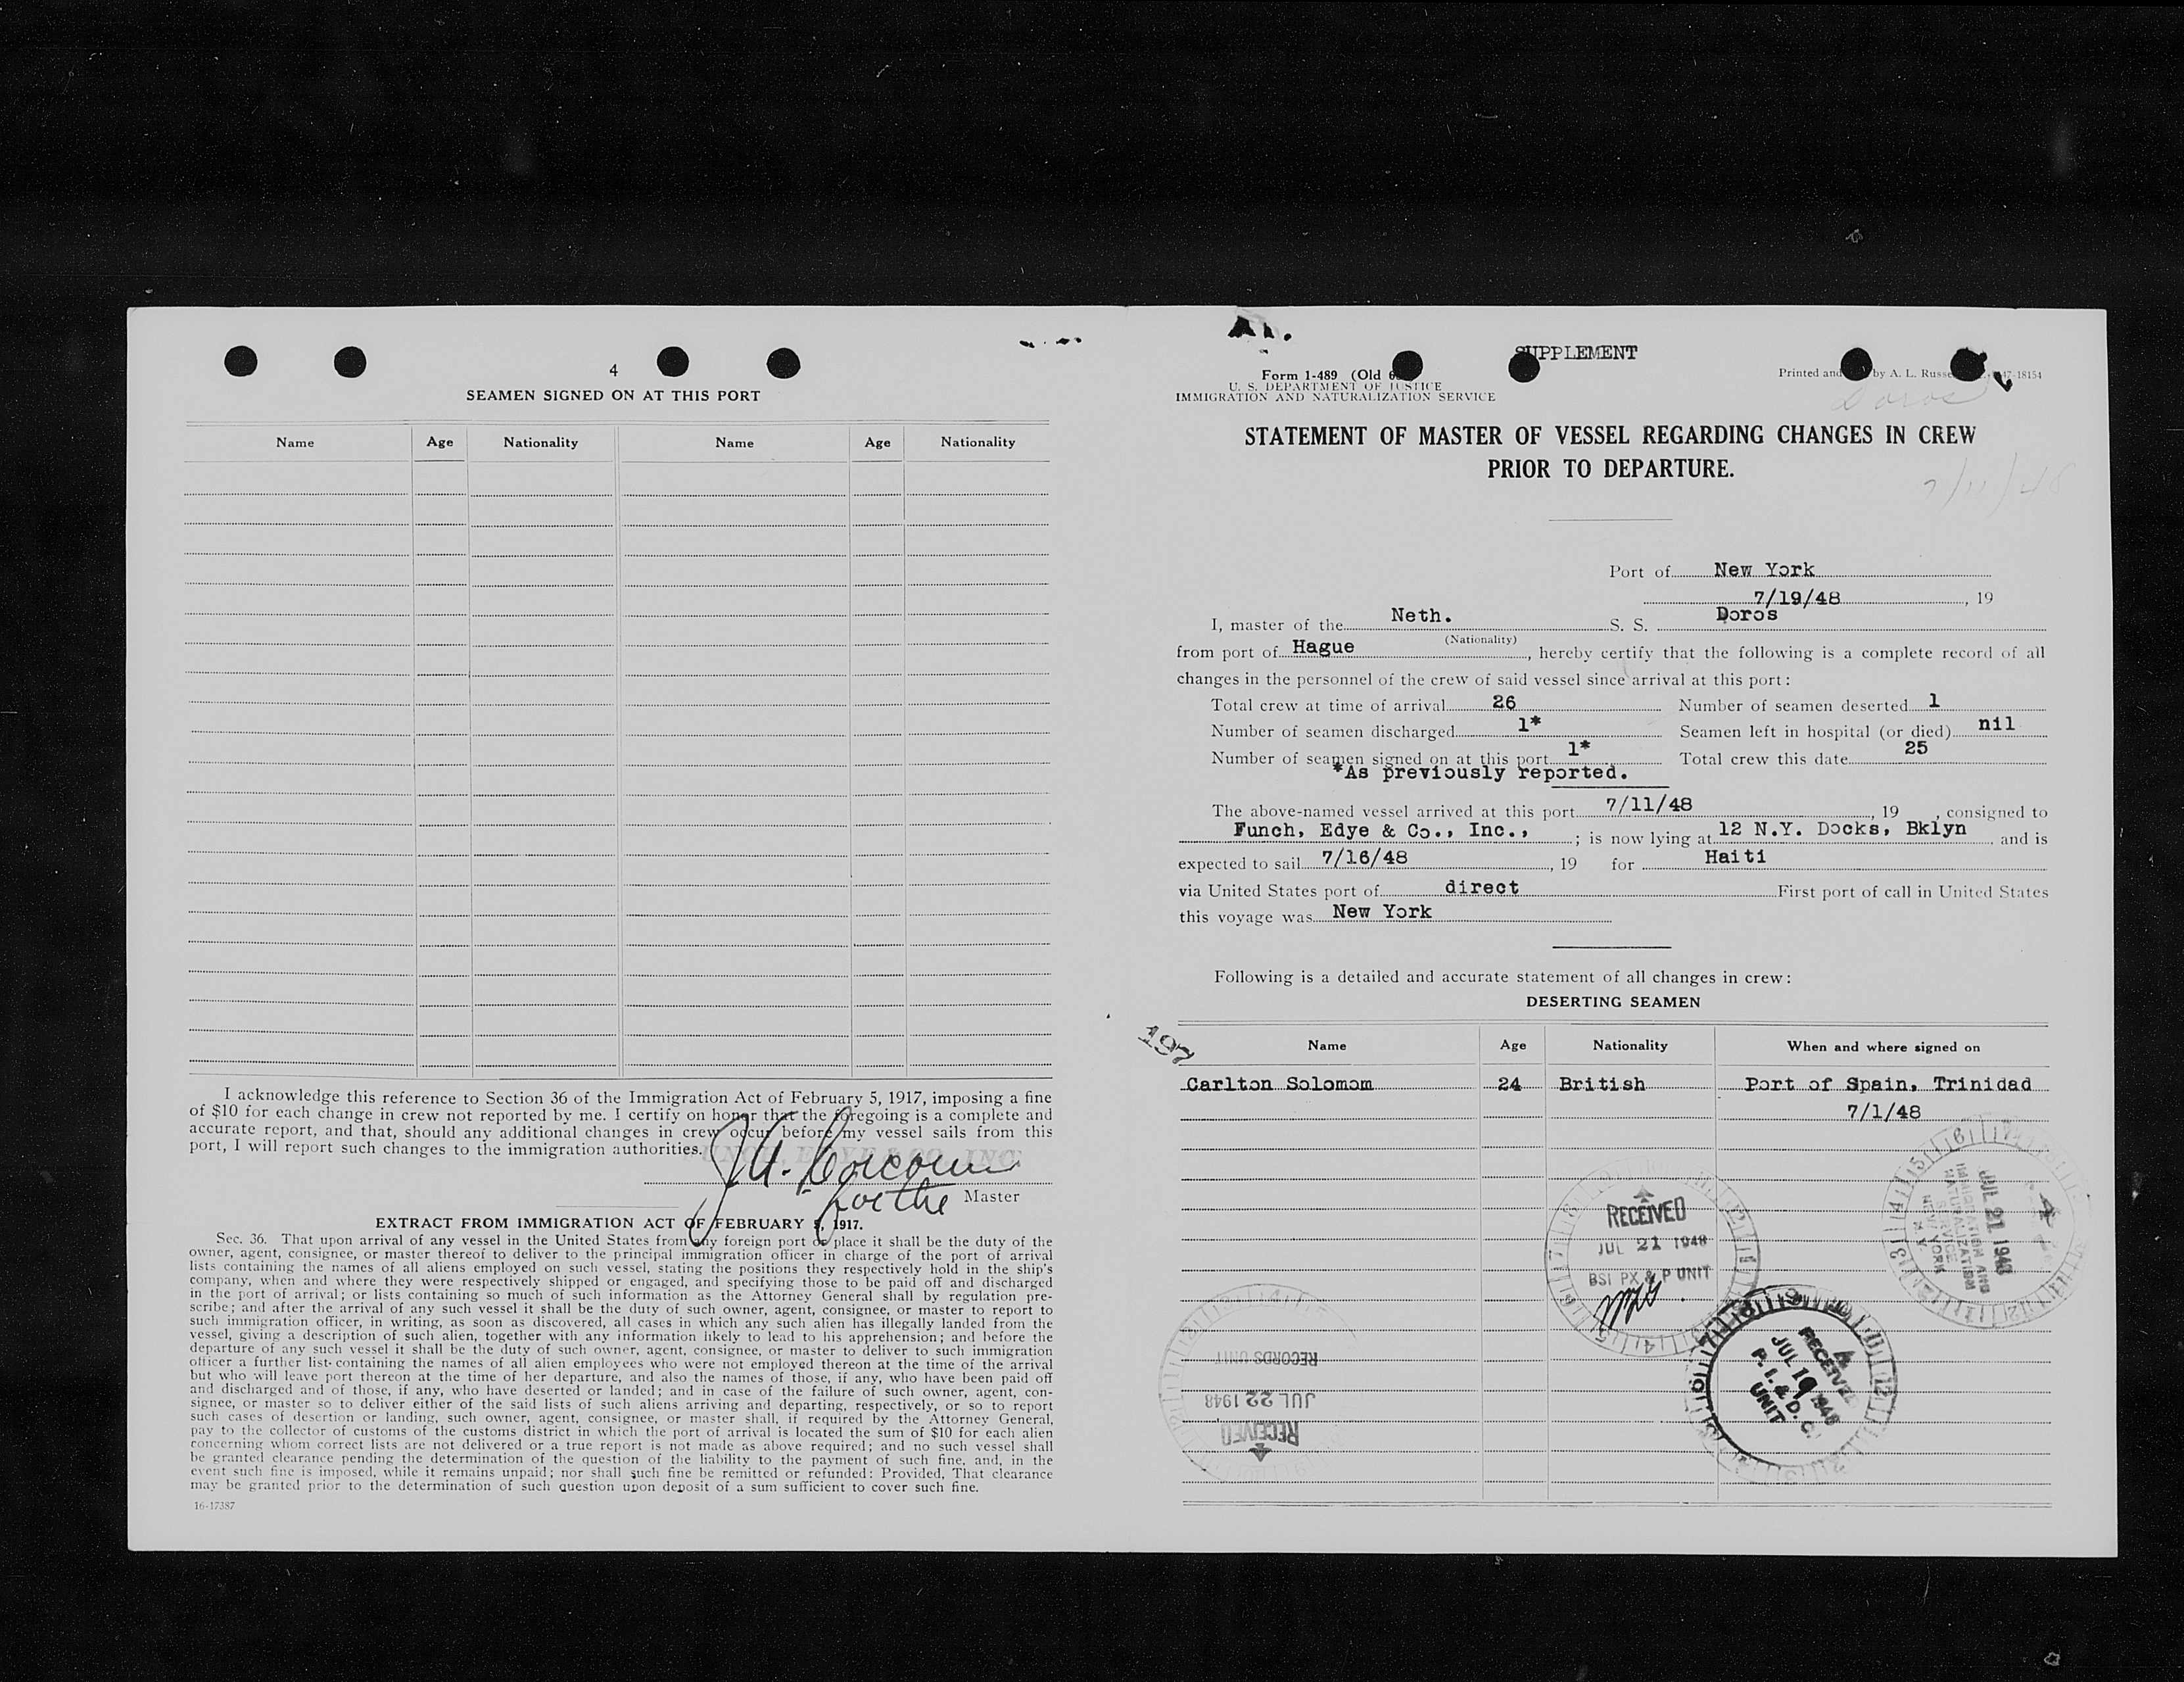 4
SEAMEN SIGNED ON AT THIS PORT
Name Age Nationality Name Age Nationality
I acknowledge this reference to Section 36 of the Immigration Act of February 5, 1917, imposing a fine
of $10 for each change in crew not reported by me. I certify on honor that the foregoing is a complete and
accurate report, and that, should any additional changes in crew occur before my vessel sails from this
port, I will report such changes to the immigration authorities.
for the Master
EXTRACT FROM IMMIGRATION ACT OF FEBRUARY 5, 1917.
Sec. 36. That upon arrival of any vessel in the United States from any foreign port or place it shall be the duty of the
owner, agent, consignee, or master thereof to deliver to the principal immigration officer in charge of the port of arrival
lists containing the names of all aliens employed on such vessel, stating the positions they respectively hold in the ship's
company, when and where they were respectively shipped or engaged, and specifying those to be paid off and discharged
in the port of arrival; or lists containing so much of such information as the Attorney General shall by regulation pre-
scribe; and after the arrival of any such vessel it shall be the duty of such owner, agent, consignee, or master to report to
such immigration officer, in writing, as soon as discovered, all cases in which any such alien has illegally landed from the
vessel, giving a description of such alien, together with any information likely to lead to his apprehension; and before the
departure of any such vessel it shall be the duty of such owner, agent, consignee, or master to deliver to such immigration
officer a further list containing the names of all alien employees who were not employed thereon at the time of the arrival
but who will leave port thereon at the time of her departure, and also the names of those, if any, who have been paid off
and discharged and of those, if any, who have deserted or landed; and in case of the failure of such owner, agent, con-
signee, or master so to deliver either of the said lists of such aliens arriving and departing, respectively, or so to report
such cases of desertion or landing, such owner, agent, consignee, or master shall, if required by the Attorney General,
pay to the collector of customs of the customs district in which the port of arrival is located the sum of $10 for each alien
concerning whom correct lists are not delivered or a true report is not made as above required; and no such vessel shall
be granted clearance pending the determination of the question of the liability to the payment of such fine, and, in the
event such fine is imposed, while it remains unpaid; nor shall such fine be remitted or refunded: Provided, That clearance
may be granted prior to the determination of such question upon deposit of a sum sufficient to cover such fine.
16-17387
SUPPLEMENT
Form 1-489 (Old
Printed and by A. L. Russe 47-18154
U. S. DEPARTMENT OF JUSTICE
IMMIGRATION AND NATURALIZATION SERVICE
Doros
STATEMENT OF MASTER OF VESSEL REGARDING CHANGES IN CREW
PRIOR TO DEPARTURE.
7/11/48
Port of New York
7/19/48, 19
I, master of the Neth. S. S. Doros
(Nationality)
from port of Hague, hereby certify that the following is a complete record of all
changes in the personnel of the crew of said vessel since arrival at this port:
Total crew at time of arrival 26 Number of seamen deserted 1
Number of seamen discharged 1* Seamen left in hospital (or died) nil
Number of seamen signed on at this port 1* Total crew this date 25
*As previously reported.
The above-named vessel arrived at this port 7/11/48, 19 , consigned to
Funch, Edye & Co., Inc., ; is now lying at 12 N.Y. Docks, Bklyn and is
expected to sail 7/16/48, 19 for Haiti
via United States port of direct First port of call in United States
this voyage was New York
Following is a detailed and accurate statement of all changes in crew:
DESERTING SEAMEN
197
Name Age Nationality When and where signed on
Carlton Solomom 24 British Port of Spain, Trinidad
7/1/48
RECEIVED
JUL 21 1948
BSI PX & P UNIT
JUL 21 1948
IMMIGRATION AND
NATURALIZATION
SERVICE
NEW YORK
N.Y.
RECEIVED
JUL 19 1948
P. I. & D. C.
UNIT
RECEIVED
JUL 22 1948
RECORDS UNIT